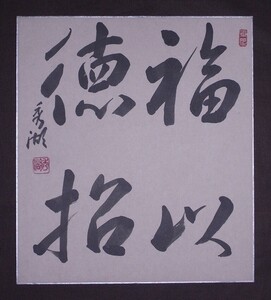 福以
德招
秀湖